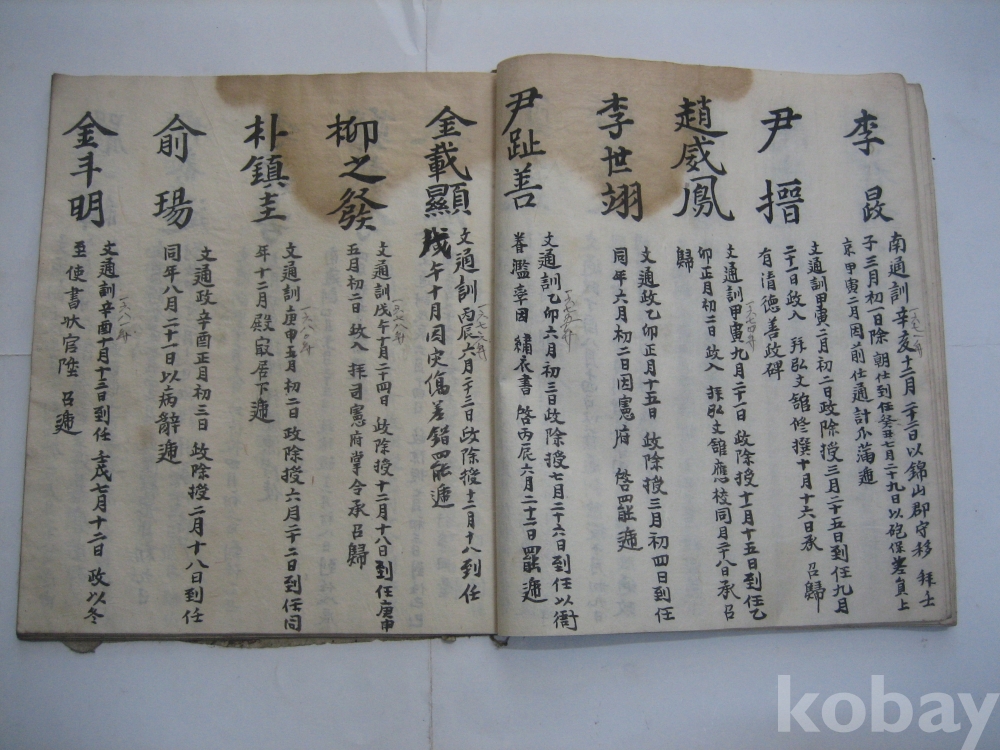 李 晸
南通訓辛亥十二月二十二日以錦山郡守移 拜壬
子三月初一日除朝仕到任癸丑七月二十九日以砲保 上
京甲寅二月因前仕通計瓜滿遞
尹 搢
文通訓甲寅二月初二日政除授三月二十五日到任九月
二十一日政入 拜弘文館修撰十月十六日承 召歸
有清德善政碑
趙威鳳
文通訓甲寅九月二十一日 政除授十一月十五日到任乙
卯正月初二日政入 拜弘文館應校同月二十八日承召
歸
李世翊
文通政乙卯正月十五日 政除授三月初四日到任
同年六月初二日因憲府 啓罷遞
尹趾善
文通訓乙卯六月初三日政除授七月二十六日到任以衙
眷濫率因 繡衣書 啓丙辰六月二十二日罷遞
金載顯
文通訓丙辰六月二十三日政除授十二月十八到任
戊午十月因 差錯罷遞
柳之發
文通訓戊午十月二十四日 政除授十二月十八日到任庚申
五月初二日政入 拜司憲府掌令承召歸
朴鎮圭
文通訓庚申五月初二日政除授六月二十二日到任同
年十二月殿最居下遞
俞瑒
文通政辛酉正月初三日 政除授二月十八日到任
同年八月二十一日以病辭遞
金斗明
文通訓辛酉十月十三日到任壬戌七月十二日政以冬
至使書狀官陞 召遞
kobay